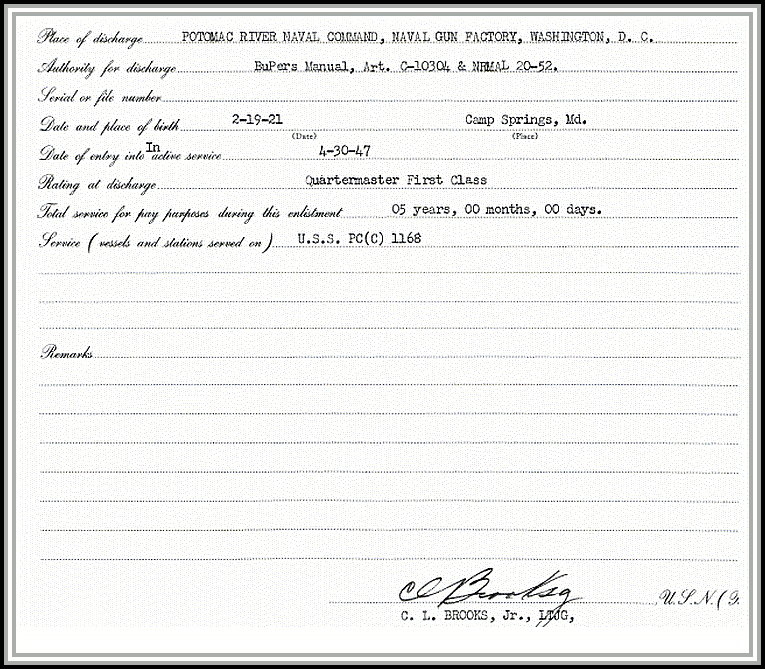 Place of discharge POTOMAC RIVER NAVAL COMMAND, NAVAL GUN FACTORY, WASHINGTON, D. C.
Authority for discharge BuPers Manual, Art. C-10304 & NRMAL 20-52.
Serial or file number
Date and place of birth 2-19-21 Camp Springs, Md.
(Date) (Place)
Date of entry into In active service 4-30-47
Rating at discharge Quartermaster First Class
Total service for pay purposes during this enlistment 05 years, 00 months, 00 days.
Service (vessels and stations served on) U.S.S. PC(C) 1168
Remarks
C L Brooks Jr U.S.N. (
C. L. BROOKS, Jr., LTJG,